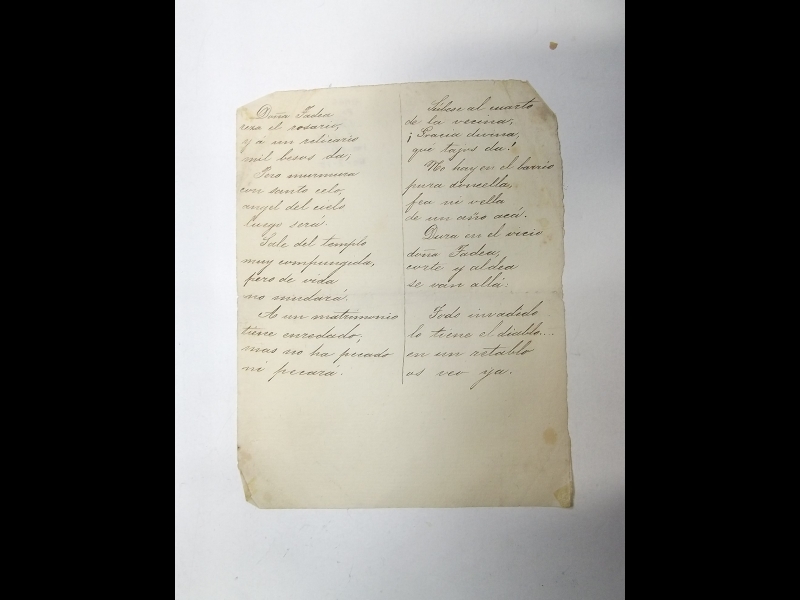 Doña Tadea
reza el rosario,
y a un relicario
mil besos da;
Pero murmura
con santo celo,
angel del cielo
luego será.
Sale del templo
muy compungida,
pero de vida
no mudará.
A un matrimonio
tiene enredado;
mas no ha pecado
ni pecará.
Súbese al cuarto
de la vecina;
¡Gracia divina,
que tajos da!
No hay en el barrio
pura doncella,
fea ni vella
de un año acá.
Dura en el vicio
doña Tadea,
corte y aldea
se van allá:
Todo invadedo
lo tiene el diablo...
en un retablo
os veo ya.